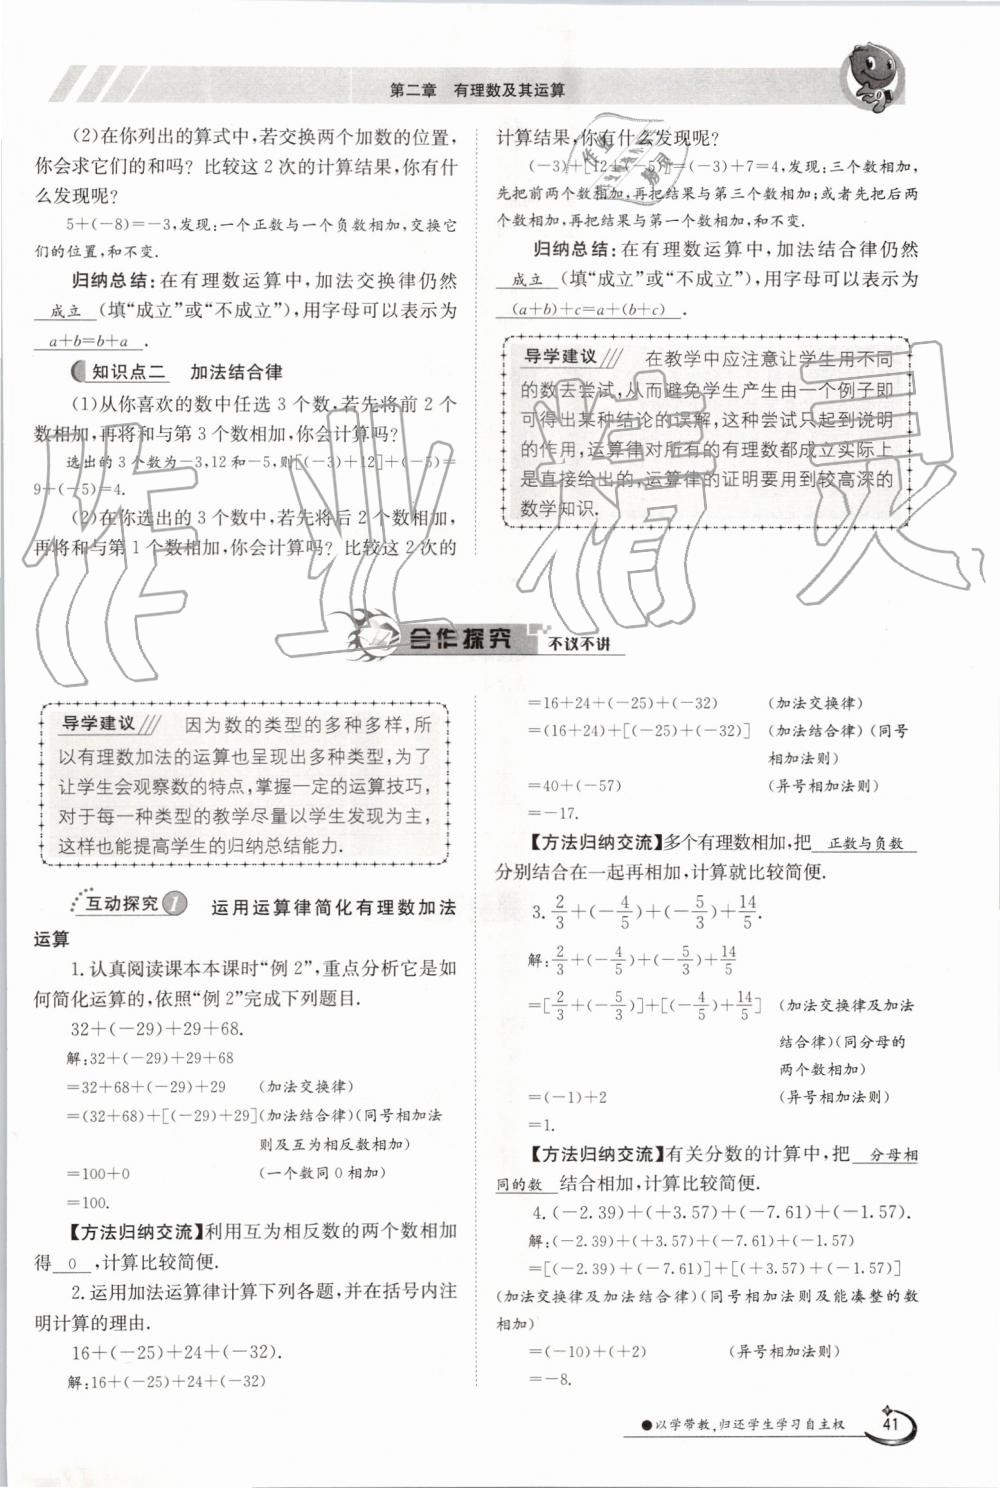 第二章 有理数及其运算
(2)在你列出的算式中,若交换两个加数的位置,
你会求它们的和吗? 比较这2次的计算结果,你有什
么发现呢?
5+(-8)=-3,发现:一个正数与一个负数相加,交换它
们的位置,和不变.
归纳总结:在有理数运算中,加法交换律仍然
成立 (填“成立”或“不成立”),用字母可以表示为
a+b=b+a .
知识点二 加法结合律
(1)从你喜欢的数中任选3个数,若先将前2个
数相加,再将和与第3个数相加,你会计算吗?
选出的3个数为-3,12和-5,则[(-3)+12]+(-5)=
9+(-5)=4.
(2)在你选出的3个数中,若先将后2个数相加,
再将和与第1个数相加,你会计算吗? 比较这2次的
计算结果,你有什么发现呢?
(-3)+[12+(-5)]=(-3)+7=4,发现:三个数相加,
先把前两个数相加,再把结果与第三个数相加;或者先把后两
个数相加,再把结果与第一个数相加,和不变.
归纳总结:在有理数运算中,加法结合律仍然
成立 (填“成立”或“不成立”),用字母可以表示为
(a+b)+c=a+(b+c) .
导学建议 在教学中应注意让学生用不同
的数去尝试,从而避免学生产生由一个例子即
可得出某种结论的误解,这种尝试只起到说明
的作用,运算律对所有的有理数都成立实际上
是直接给出的,运算律的证明要用到较高深的
数学知识.
作业精灵
合作探究 不议不讲
导学建议 因为数的类型的多种多样,所
以有理数加法的运算也呈现出多种类型,为了
让学生会观察数的特点,掌握一定的运算技巧,
对于每一种类型的教学尽量以学生发现为主,
这样也能提高学生的归纳总结能力.
互动探究 1 运用运算律简化有理数加法
运算
1.认真阅读课本本课时“例2”,重点分析它是如
何简化运算的,依照“例2”完成下列题目.
32+(-29)+29+68.
解:32+(-29)+29+68
=32+68+(-29)+29 (加法交换律)
=(32+68)+[(-29)+29](加法结合律)(同号相加法
则及互为相反数相加)
=100+0 (一个数同0相加)
=100.
【方法归纳交流】利用互为相反数的两个数相加
得 0 ,计算比较简便.
2.运用加法运算律计算下列各题,并在括号内注
明计算的理由.
16+(-25)+24+(-32).
解:16+(-25)+24+(-32)
=16+24+(-25)+(-32) (加法交换律)
=(16+24)+[(-25)+(-32)] (加法结合律)(同号
相加法则)
=40+(-57) (异号相加法则)
=-17.
【方法归纳交流】多个有理数相加,把 正数与负数
分别结合在一起再相加,计算就比较简便.
3. 2/3+(-4/5)+(-5/3)+14/5.
解: 2/3+(-4/5)+(-5/3)+14/5
=[2/3+(-5/3)]+[(-4/5)+14/5] (加法交换律及加法
结合律)(同分母的
两个数相加)
=(-1)+2 (异号相加法则)
=1.
【方法归纳交流】有关分数的计算中,把 分母相
同的数 结合相加,计算比较简便.
4.(-2.39)+(+3.57)+(-7.61)+(-1.57).
解:(-2.39)+(+3.57)+(-7.61)+(-1.57)
=[(-2.39)+(-7.61)]+[(+3.57)+(-1.57)]
(加法交换律及加法结合律)(同号相加法则及能凑整的数
相加)
=(-10)+(+2) (异号相加法则)
=-8.
●以学带教,归还学生学习自主权 41